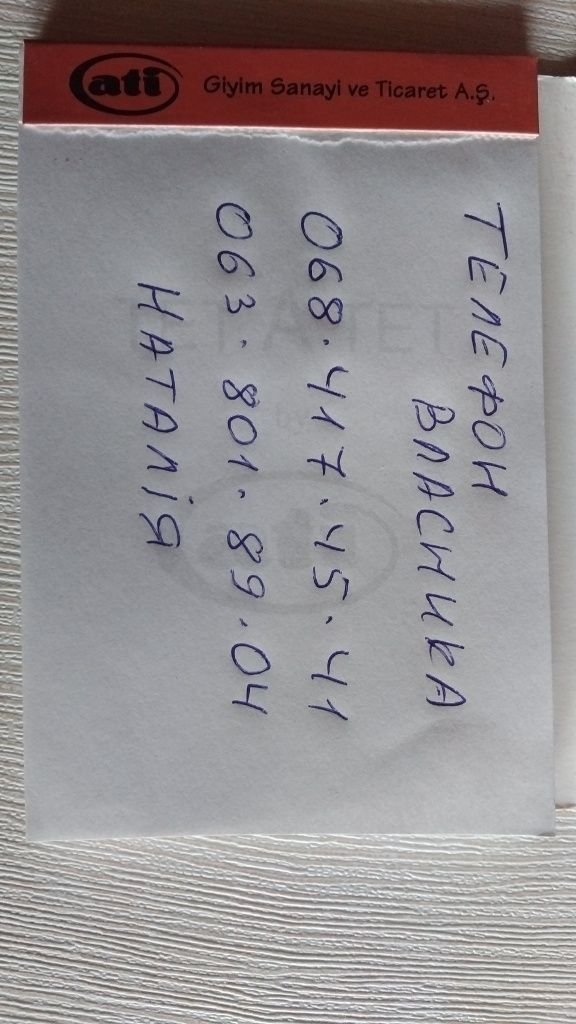 ati Giyim Sanayi ve Ticaret A.Ş.
ТЕЛЕФОН
ВЛАСНИКА
068.417.45.41
063.801.89.04
НАТАЛІЯ